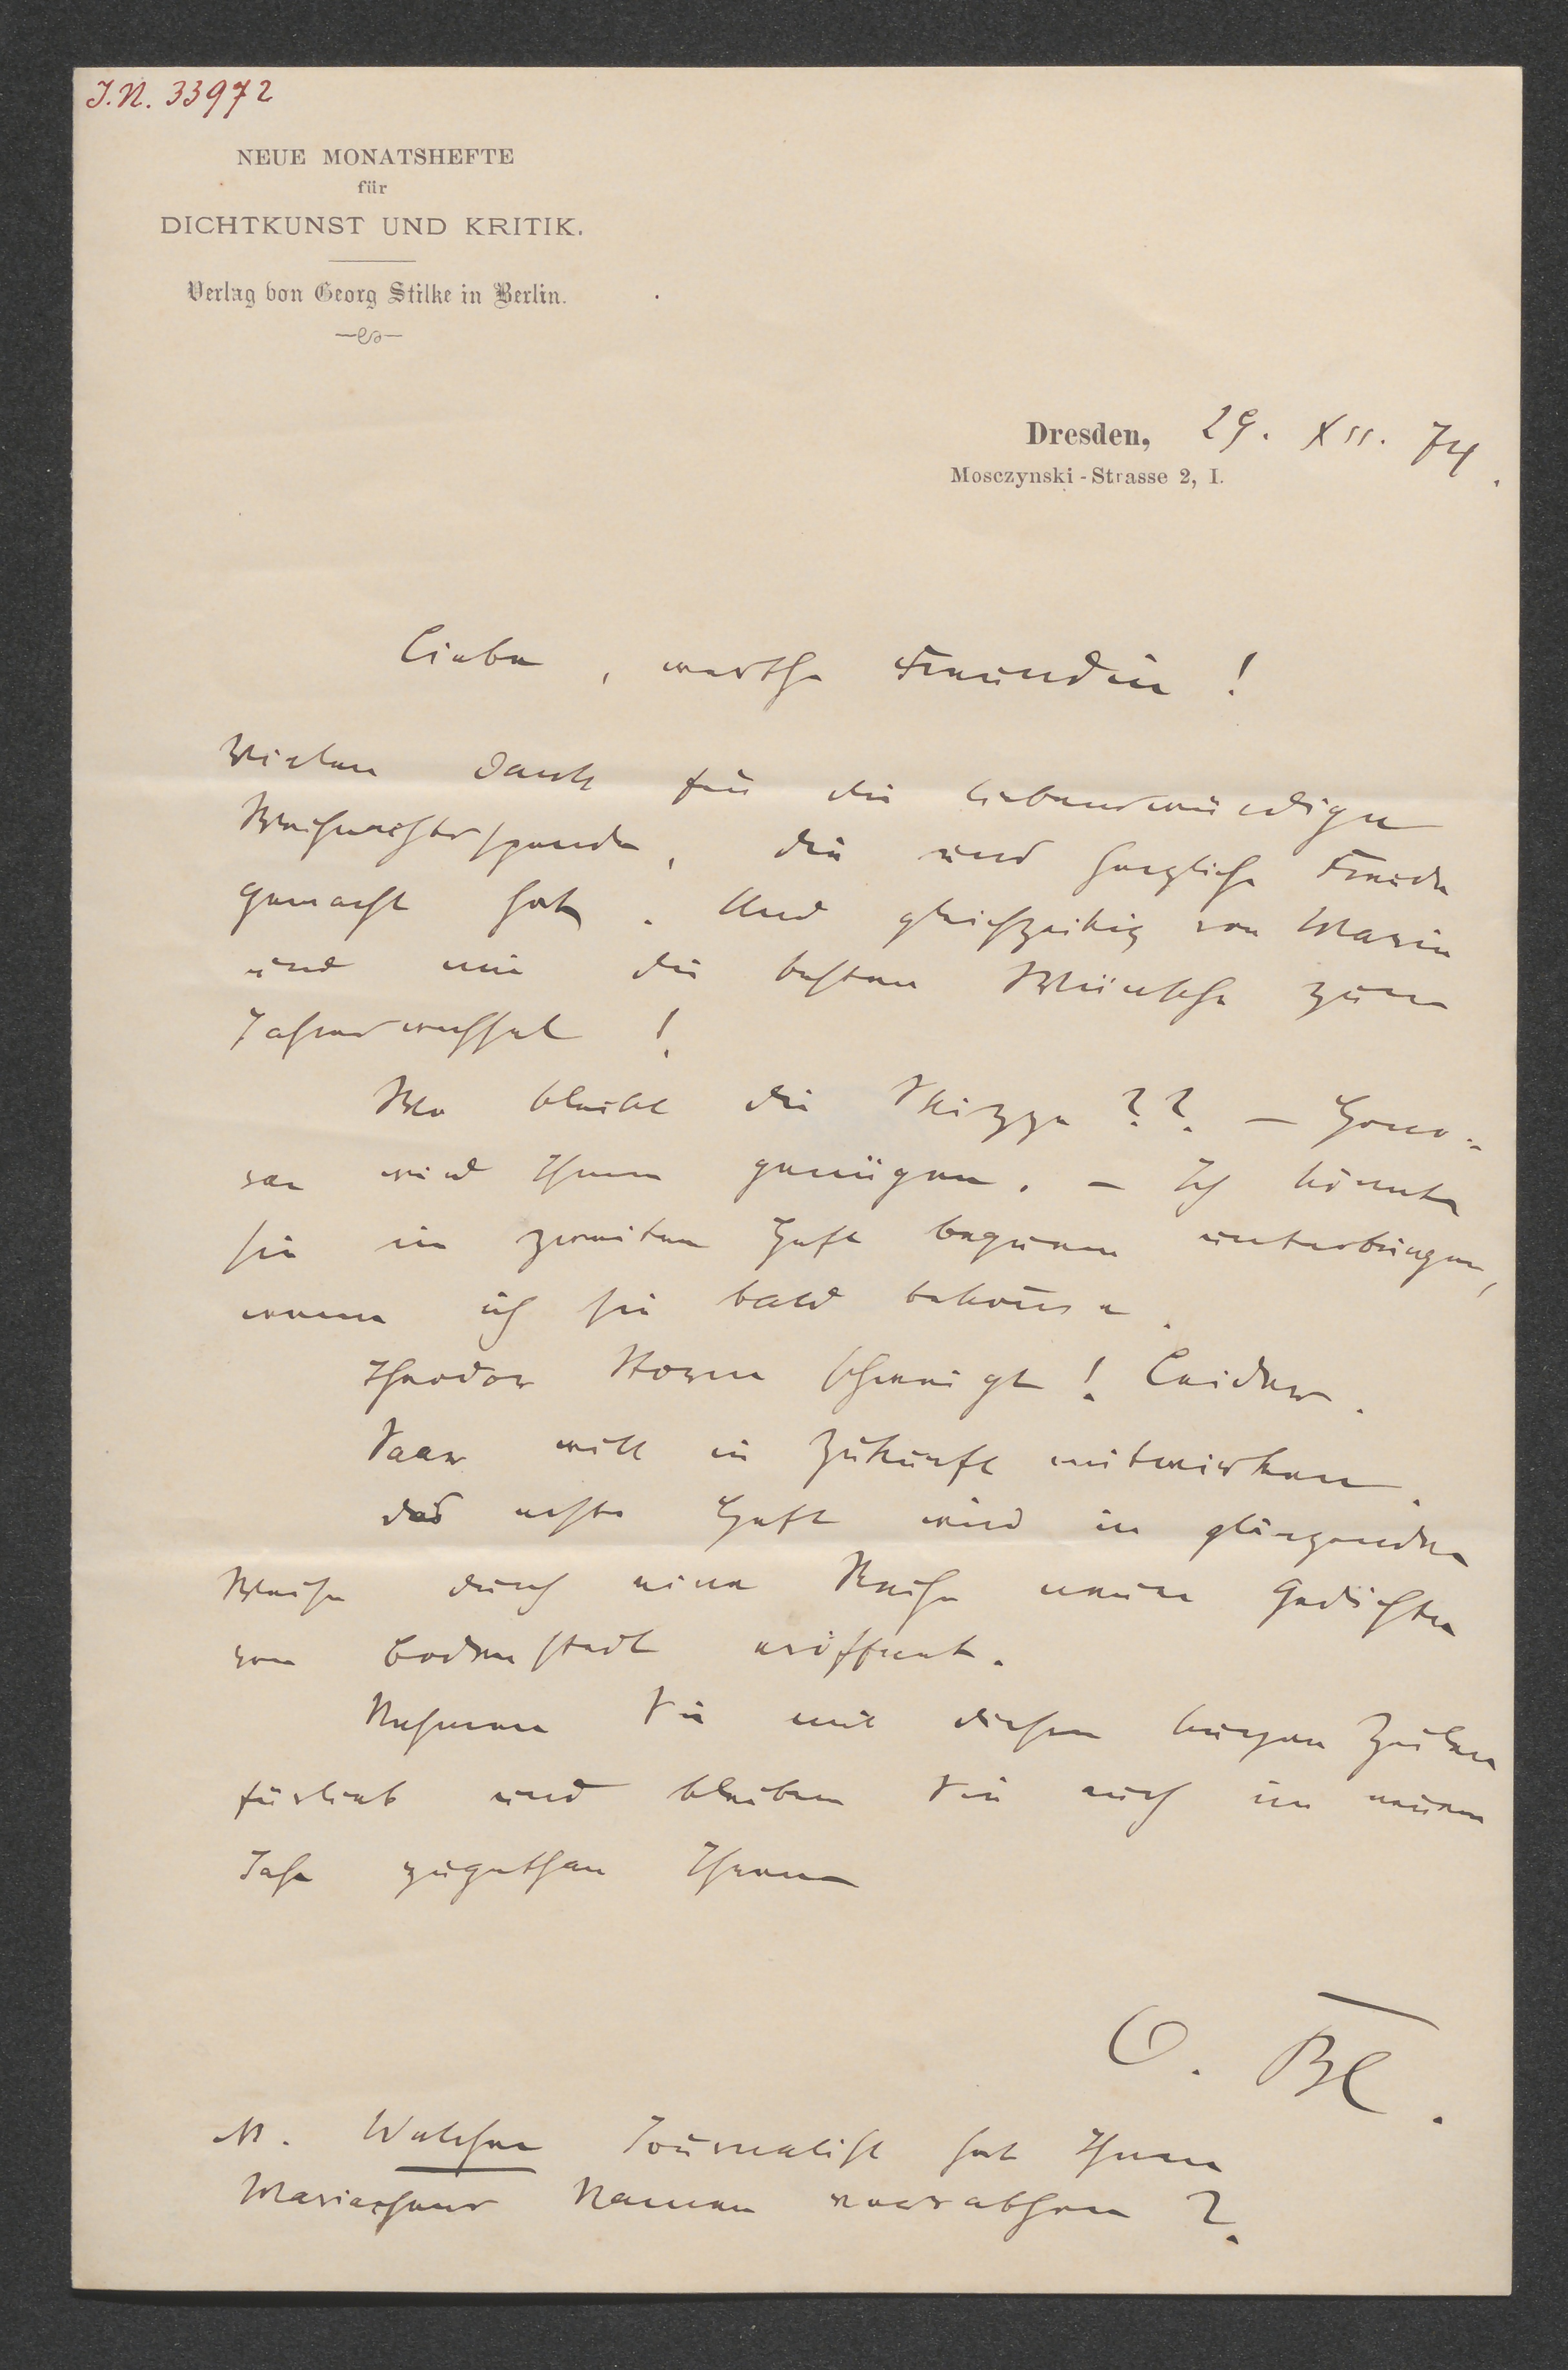 J.N. 33972
NEUE MONATSHEFTE
für
DICHTKUNST UND KRITIK.
Verlag von Georg Stilke in Berlin.
Dresden, 29. XII. 74.
Mosczynski-Strasse 2, I.
Liebe, werthe Freundin!
Vielen Dank für die liebenswürdige
Weihnachtsspende, die uns herzliche Freude
gemacht hat. Und gleichzeitig von Marie
und mir die besten Wünsche zum
Jahreswechsel!
Wo bleibt die Skizze?? – Hono-
rar wird Ihnen genügen. – Ich könnte
sie im zweiten Heft bequem unterbringen,
wenn ich sie bald bekäme.
Theodor Storm schweigt! Leider.
Saar will in Zukunft mitwirken.
Das erste Heft wird in glänzender
Weise durch eine Reihe neuer Gedichte
von Bodenstedt eröffnet.
Nehmen Sie mit diesen kurzen Zeilen
fürlieb und bleiben Sie auch im neuen
Jahr zugethan Ihrem
O. Bl.
N. Welcher Journalist hat Ihnen
Mariechens Namen verrathen?